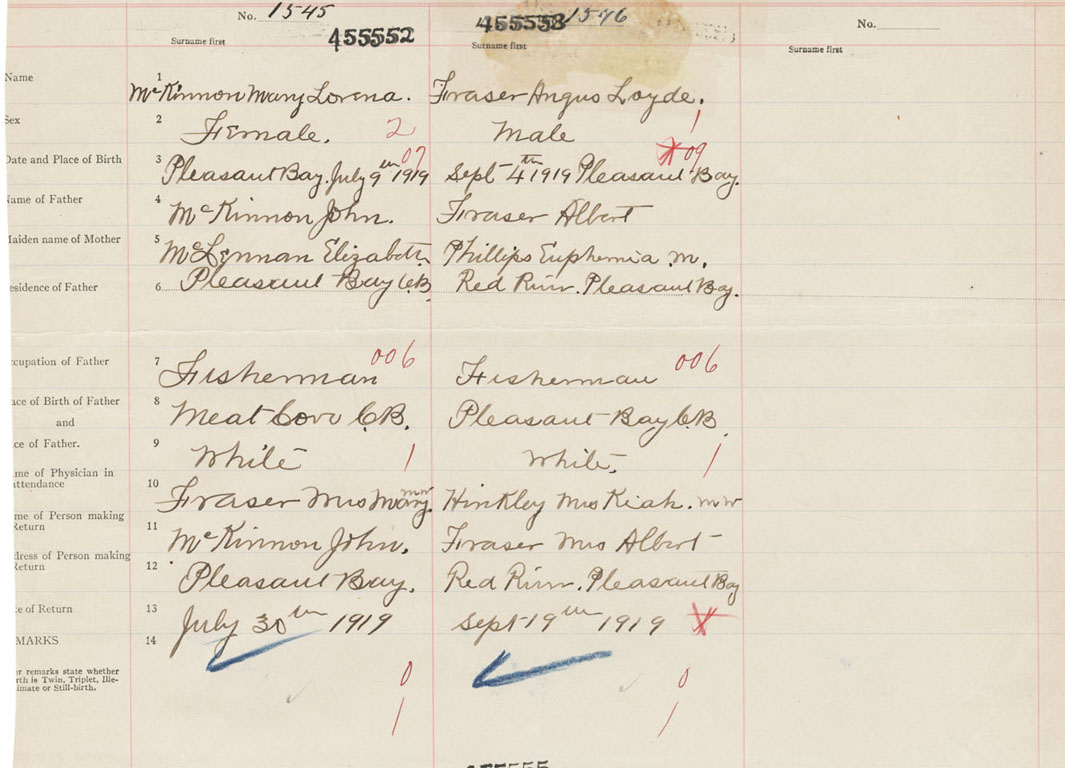 No. 1545
455552
455553 1546
No.
Surname first
Surname first
Surname first
Name
1
McKinnon Mary Lorena.
Fraser Angus Loyde.
Sex
2
Female.
2
Male
1
Date and Place of Birth
3
Pleasant Bay. July 9th 1919
07
Sept 4th 1919 Pleasant Bay.
09
Name of Father
4
McKinnon John.
Fraser Albert
Maiden name of Mother
5
McLennan Elizabeth.
Phillips Euphemia M.
esidence of Father
6
Pleasant Bay C.B.
Red River. Pleasant Bay.
ccupation of Father
7
Fisherman
006
Fisherman
006
ace of Birth of Father
8
Meat Cove C.B.
Pleasant Bay C.B.
and
ce of Father.
9
White
1
White.
1
me of Physician in
attendance
10
Fraser Mrs Mary. mw
Hinkley Mrs Kiah. mw
me of Person making
Return
11
McKinnon John.
Fraser Mrs Albert
dress of Person making
Return
12
Pleasant Bay.
Red River. Pleasant Bay
te of Return
13
July 30th 1919
Sept 19th 1919
X
MARKS
14
er remarks state whether
rth is Twin, Triplet, Ille-
imate or Still-birth.
0
0
1
1